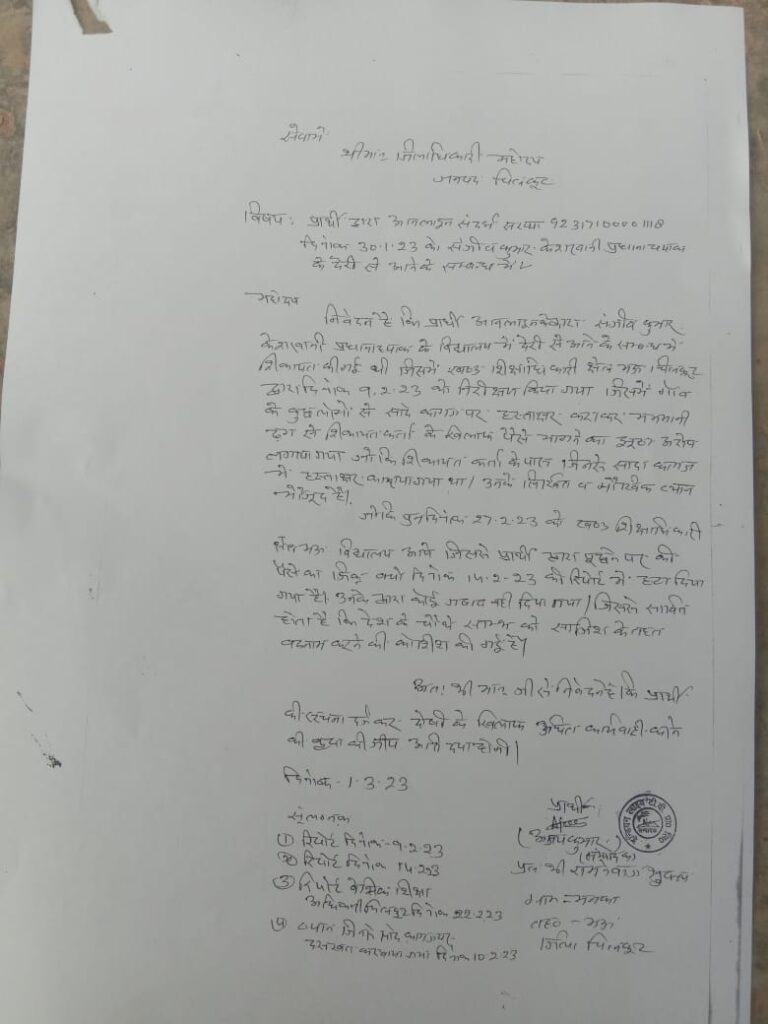 सेवामें
श्रीमान जिलाधिकारी महोदय
जनपद चित्रकूट
विषय: प्रार्थी द्वारा आनलाइन संदर्भ संख्या 92317100001118
दिनांक 30.1.23 को संजीव कुमार केशरवानी प्रधानाध्यापक
के देरी से आने के सम्बन्ध में
महोदय
निवेदन है कि प्रार्थी आनलाइन के द्वारा संजीव कुमार
केशरवानी प्रधानाध्यापक के विद्यालय में देरी से आने के सम्बन्ध में
शिकायत की गई थी जिसमें खण्ड शिक्षाधिकारी क्षेत्र मऊ चित्रकूट
द्वारा दिनांक 9.2.23 को निरीक्षण किया गया जिसमें गांव
के कुछ लोगो से सादे कागज पर हस्ताक्षर कराकर मनमानी
ढंग से शिकायतकर्ता के खिलाफ पैसे मांगने का झूठा आरोप
लगाया गया जो कि शिकायत कर्ता के पास जिनसे सादा कागज
में हस्ताक्षर करवाया गया था। उनके लिखित व मौखिक बयान
मौजूद है।
जो कि पुन दिनांक 27.2.23 को खण्ड शिक्षाधिकारी
क्षेत्र मऊ विद्यालय आये जिससे प्रार्थी द्वारा पूछने पर की
पैसे का जिक्र क्यों दिनांक 14.2.23 की रिपोर्ट में हटा दिया
गया है। उनके द्वारा कोई जवाब नही दिया गया। जिससे साबित
होता है कि देश के चौथे स्तम्भ को साजिश के तहत
बदनाम करने की कोशिश की गई है।
अतः श्री मान जी से निवेदन है कि प्रार्थी
की सूचना दर्ज कर दोषी के खिलाफ उचित कार्यवाही करने
की कृपा की जाय अति दया होगी।
दिनांक - 1.3.23
संलग्नक
① रिपोर्ट दिनांक - 9.2.23
② रिपोर्ट दिनांक 14.2.23
③ रिपोर्ट बेसिक शिक्षा
अधिकारी चित्रकूट दिनांक 22.2.23
④ बयान जिनसे सादे कागज पर
दस्तखत करवाया गया दिनांक 10.2.23
प्रार्थी
(अजय कुमार)
(संपादक)
पुत्र श्री राम शुक्ल
ग्राम =
तह० - मऊ
जिला चित्रकूट